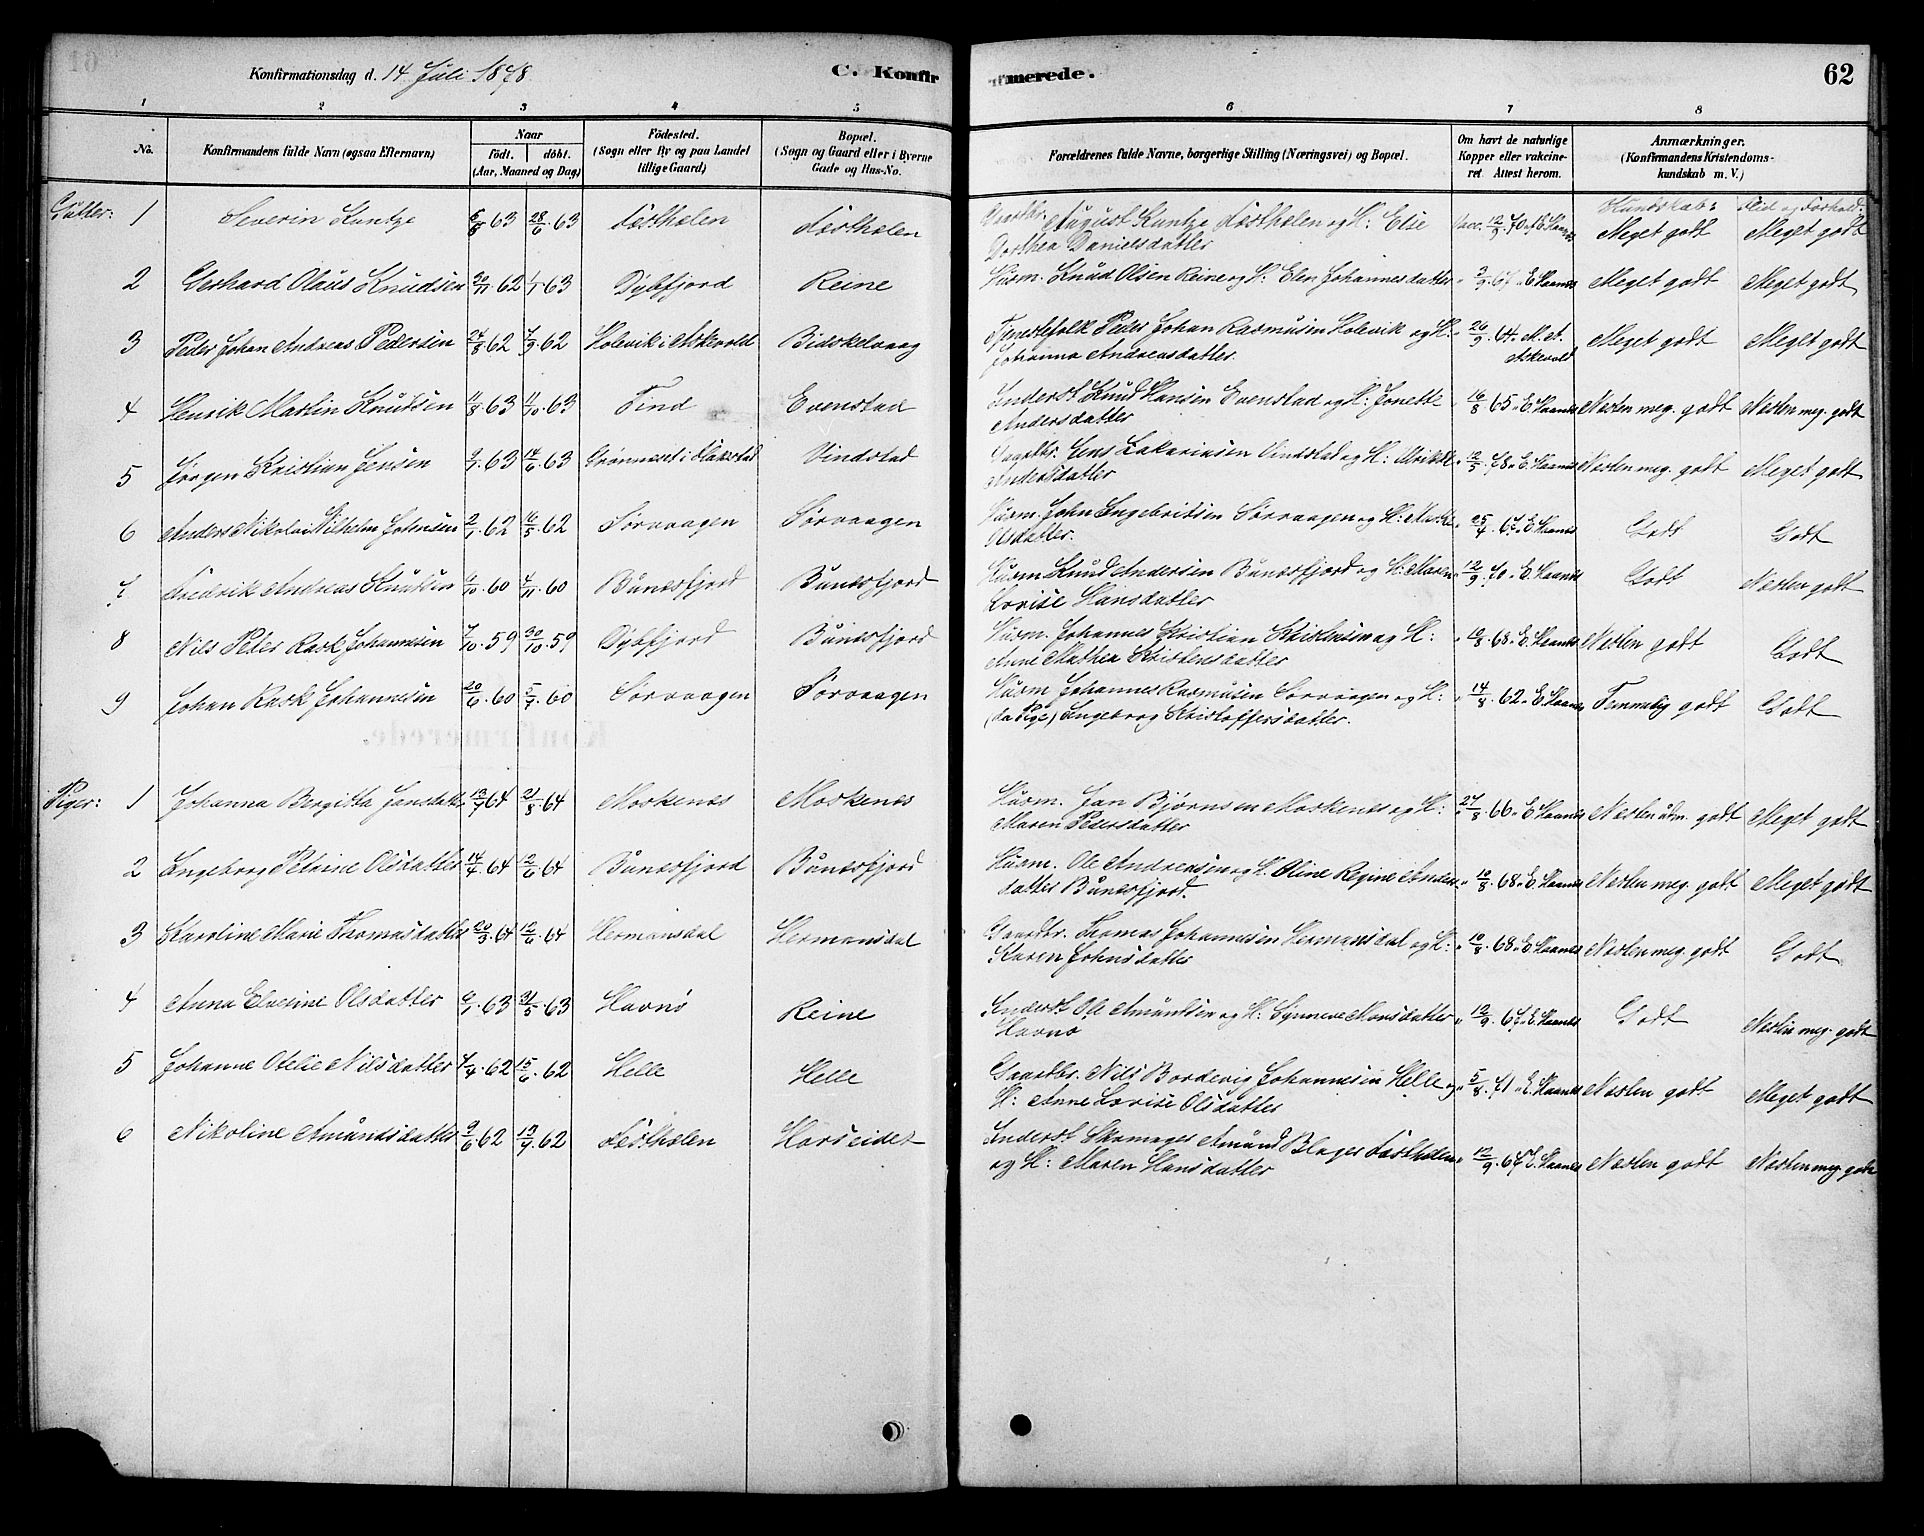 Konfirmationsdag d. 14 Juli 1878.
C. Konfir
merede.
62
1 2 3 4 5 6 7 8
No.
Konfirmandens fulde Navn (ogsaa Efternavn)
Naar
födt. döbt.
(Aar, Maaned og Dag)
Födested.
(Sogn eller By og paa Landet
tillige Gaard)
Bopæl.
(Sogn og Gaard eller i Byerne
Gade og Hus-No.
Forældrenes fulde Navne, borgerlige Stilling (Næringsvei) og Bopæl.
Om havt de naturlige
Kopper eller vakcine-
ret. Attest herom.
Anmærkninger.
(Konfirmandens Kristendoms-
kundskab m. V.)
Kundskab: Flid og Forhold:
Gutter: 1 Severin Kuntze 63 28/6 63 August Kuntze og H: Else Vacc. 12/9 70 Meget godt Meget godt
Dorthea Danielsdatter
2 Gerhard Olaus Knudsen 30/11 62 1/1 63 Dybfjord Reine Husm. Knud Olsen Reine og H: Elen Johannesdatter 3/9 67 E Haanes Meget godt Meget godt
3 Peder Johan Andreas Pedersen 24/8 62 7/9 62 Holevik i Askevold Tjenestefolk Peder Johan Rasmusen Holevik og H: 26/9 64 Meget godt Meget godt
Johanna Andreasdatter. Askevold
4 Henrik Martin Knutsen 11/8 63 11/10 63 Tind Evenstad Inderst Knud Hansen Evenstad og H: Jonette 16/8 65 E Haanes Næsten meg. godt Næsten meg. godt
Andersdatter
5 Jørgen Kristian Jensen 63 14/6 63 Vindstad Gaardbr. Jens Zakariasen Vindstad og H: 12/5 78 E Haanes Næsten meg. godt Meget godt
Andersdatter
6 Anders Nikolai Vilhelm Johnsen 2/1 62 62 Sørvaagen Sørvaagen Husm. John Ingebritsen Sørvaagen og H: 25/4 67 E Haanes Godt Godt
Olsdatter.
7 Fredrik Andreas Knutsen 60 4/11 60 Bunesfjord Bunesfjord Husm Knud Andersen Bunesfjord og H: Maren 12/9 70 E Haanes Godt Næsten godt
Lovise Hansdatter
8 Nils Peter Rask Johannesen 7/10 59 30/10 59 Dybfjord Bunesfjord Husm. Johannes Kristian Kristensen og H: 10/8 68 E Haanes Næsten godt Godt
Anne Mathea Kristensdatter
9 Johan Rask Johannesen 20/6 60 5/7 60 Sørvaagen Sørvaagen Husm Johannes Rasmusen Sørvaagen og H: 14/8 62 E Haanes Temmelig godt Godt
(da Pige) Ingeborg Kristoffersdatter.
Piger: 1 Johanna Bergitta Jansdatter 64 21/8 64 Moskenes Moskenes Husm. Jan Bjørnsen Moskenes og H: 27/8 66 E Haanes Næsten udm. godt Meget godt
Maren Pedersdatter
2 Ingeborg Petrine Olsdatter 14/4 64 12/6 64 Bunesfjord Bunesfjord Husm. Ole Andreasen og H. Oline Regine Anders 10/8 68 E. Haanes Næsten meg. godt Meget godt
datter Bunesfjord.
3 Karoline Marie Thomasdatter 20/3 64 12/6 64 Hermansdal Hermansdal Gaardbr. Tomas Johannesen Hermansdal og H: 10/8 68 E Haanes Næsten meg. godt Godt
Karen Johnsdatter
4 Anna Elverine Olsdatter 63 31/5 63 Havnø Reine Inderst Ole Amundsen og H: Synneve Monsdatter 12/9 67 E Haanes Godt Næsten meg. godt
Havnø
5 Johanne Otelie Nilsdatter 62 15/6 62 Helle Helle Gaardbr. Nils Bordevig Johannesen Helle og 5/8 71 E Haanes Næsten godt Meget godt
H: Anne Lovise Olsdatter
6 Nikoline Amundsdatter 9/6 62 62 Horseidet Inderst Skomager Amund 12/9 67 E Haanes Næsten godt Næsten meg. godt
og H: Maren Hansdatter